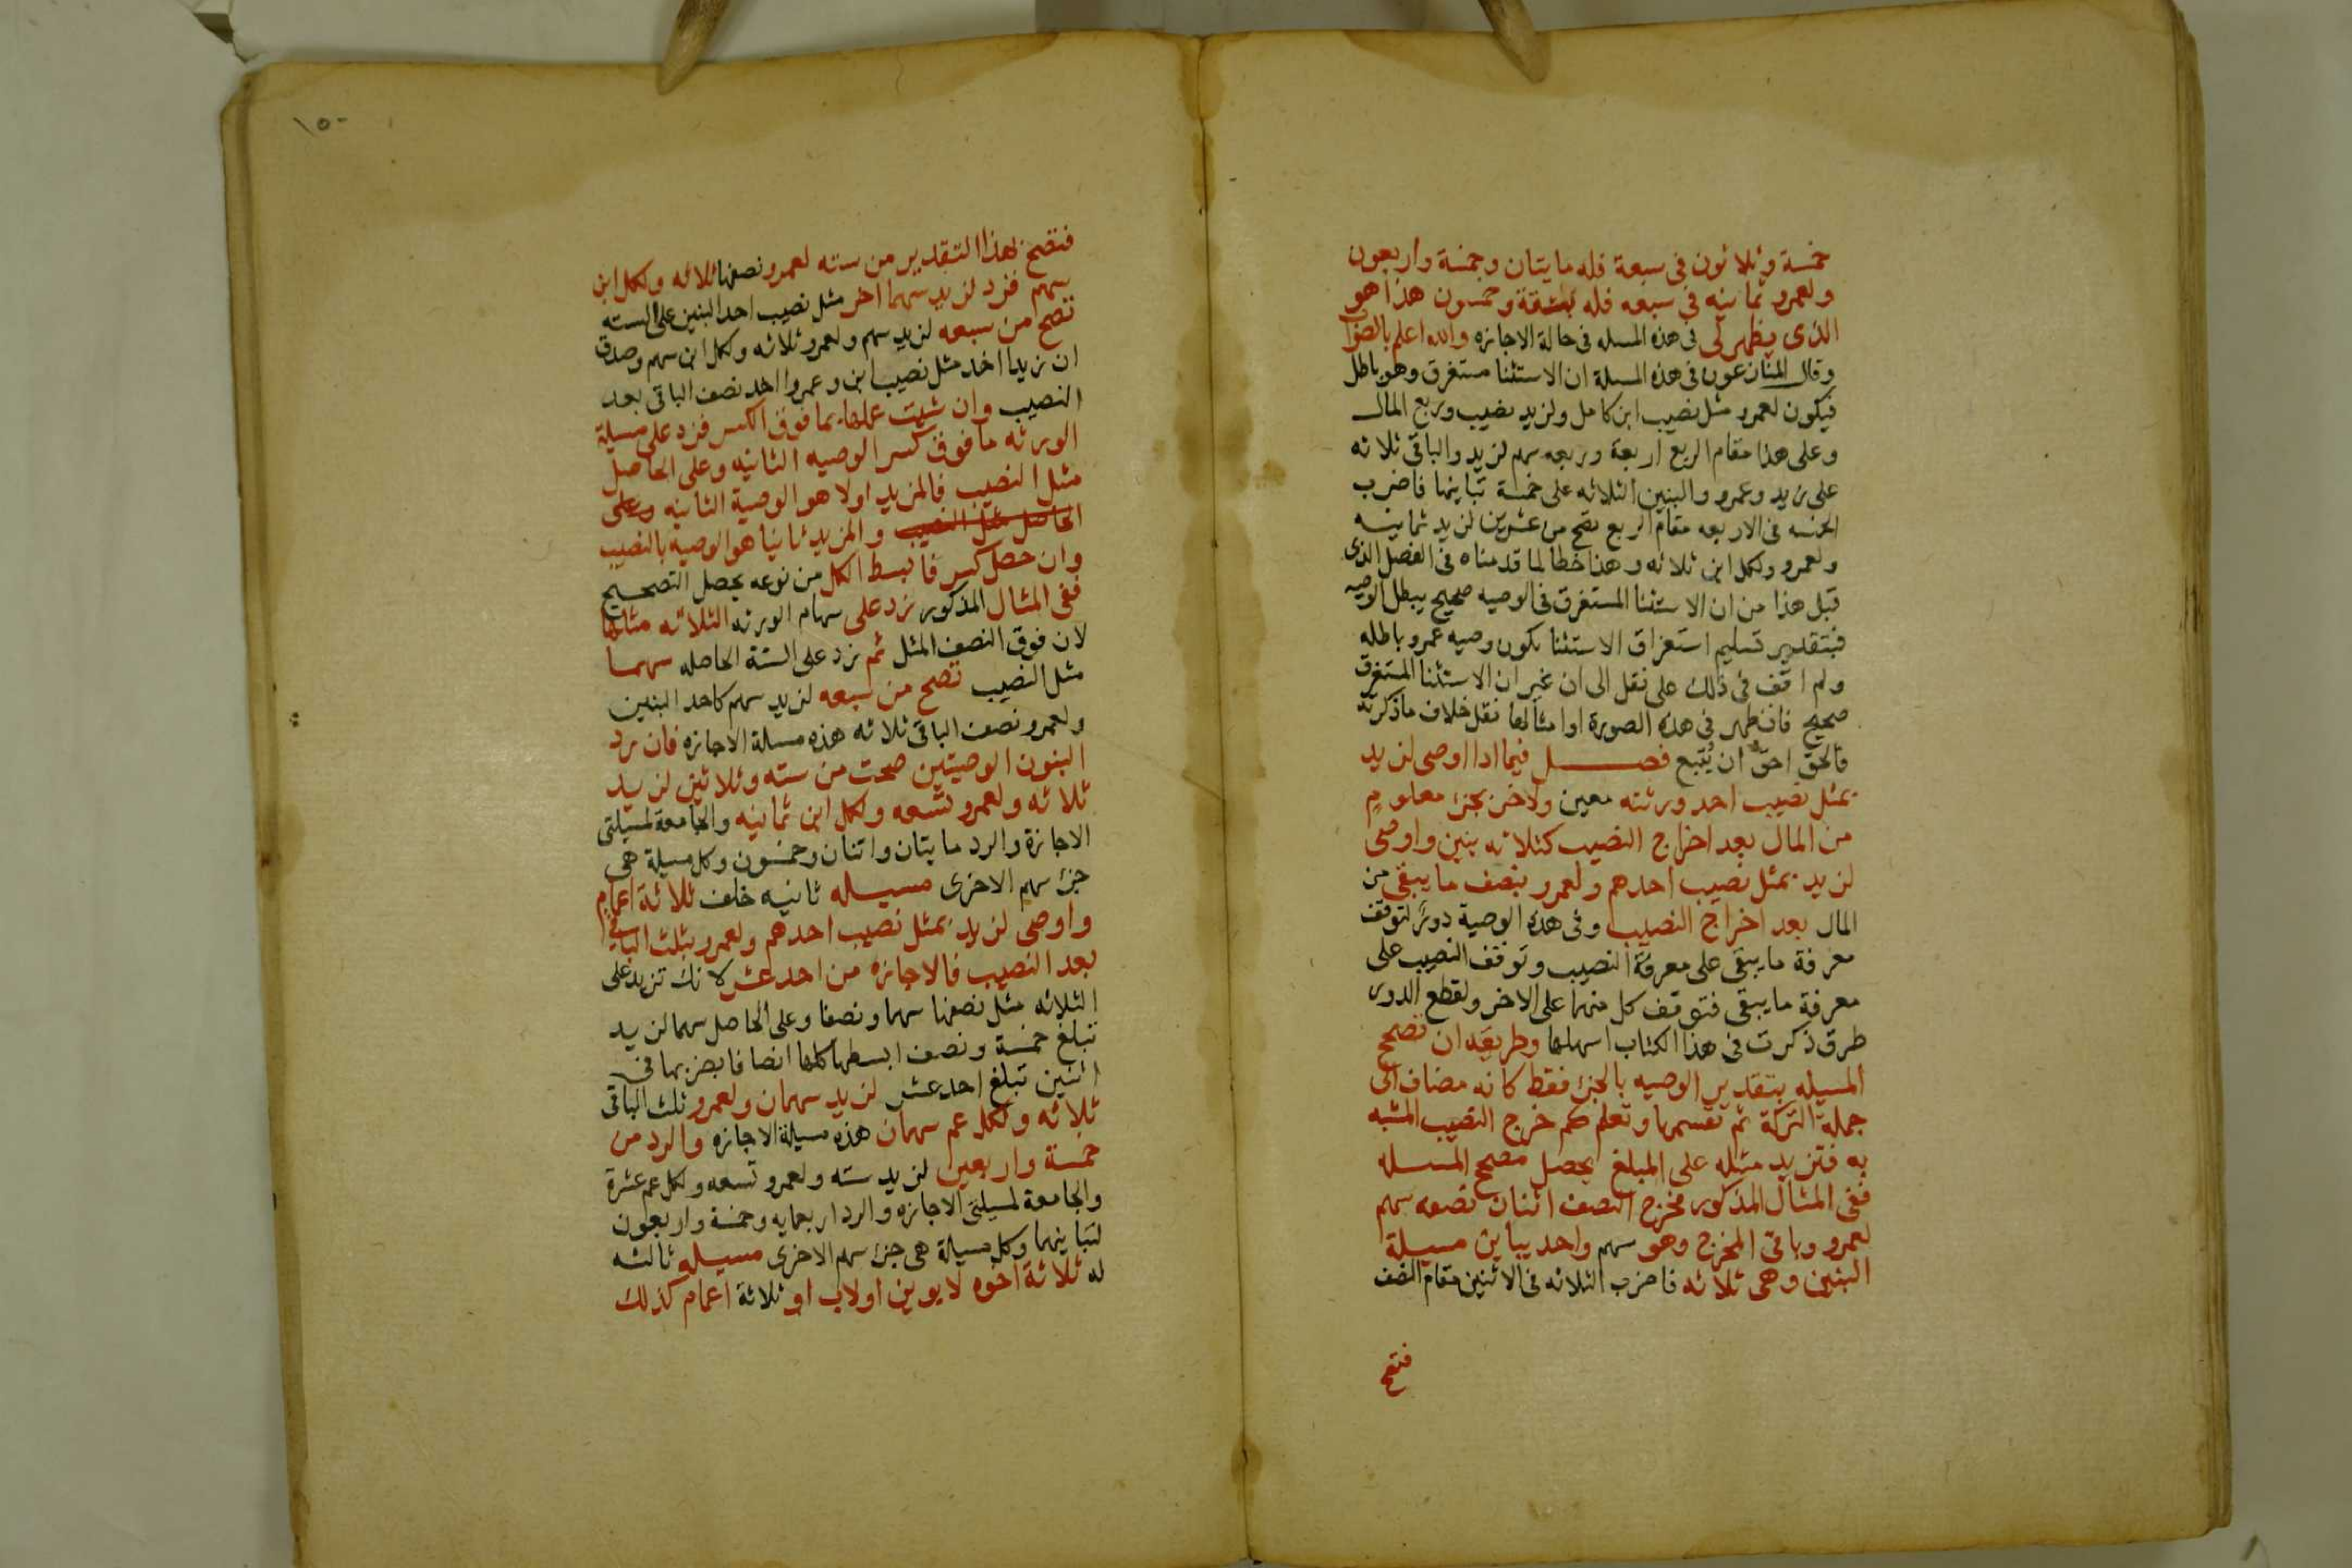 خمسة وثلاثون فى سبعة فله مايتان وخمسة واربعون
ولعمرو ثمانيه فى سبعه فله ستة وخمسون هذا هو
الذى يظهر لى فى هذه المسله فى حالة الاجازه والله اعلم بالصواب
وقال المنازعون فى هذه المسلة ان الاستثنا مستغرق وهو باطل
فيكون لعمرو مثل نصيب ابن كامل ولزيد نصيب وربع المال
وعلى هذا مقام الربع اربعة وربعه سهم لزيد والباقى ثلاثه
على زيد وعمرو والبنين الثلاثه على خمسة تباينها فاضرب
الخمسه فى الاربعه مقام الربع تصح من عشرين لزيد ثمانيه
ولعمرو ولكل ابن ثلاثه وهذا خطا لما قدمناه فى الفصل الذى
قبل هذا من ان الاستثنا المستغرق فى الوصيه صحيح يبطل الوصيه
فبتقدير تسليم استغراق الاستثنا تكون وصيه عمرو باطله
ولم اقف فى ذلك على نقل الى ان غير ان الاستثنا المستغرق
صحيح فان ظهر فى هذه الصورة او امثالها نقل خلاف ماذكرته
فالحق احق ان يتبع فصل فيما اذا اوصى لزيد
بمثل نصيب احد ورثته معين ولاخر بجزء معلوم
من المال بعد اخراج النصيب كثلاثه بنين واوصى
لزيد بمثل نصيب احدهم ولعمرو بنصف ما يبقى من
المال بعد اخراج النصيب وفى هذه الوصية دور لتوقف
معرفة مايبقى على معرفة النصيب وتوقف النصيب على
معرفة مايبقى فتوقف كل منهما على الاخر ولقطع الدور
طرق ذكرت فى هذا الكتاب اسهلها وطريقه ان تصحح
المسيله بتقدير الوصيه بالجزء فقط كانه مضاف الى
جملة التركة ثم تقسمها وتعلم كم خرج النصيب المشبه
به فتزيد مثله على المبلغ يحصل مصحح المسله
ففى المثال المذكور مخرج النصف اثنان نصفه سهم
لعمرو وباقى المخرج وهو سهم واحد يباين مسيلة
البنين وهى ثلاثه فاضرب الثلاثه فى الاثنين مقام النصف
فتصح
١٥٠
فتصح بهذا التقدير من سته لعمرو نصفها ثلاثه ولكل ابن
سهم فزد لزيد سهما اخر مثل نصيب احد البنين على السته
تصح من سبعه لزيد سهم ولعمرو ثلاثه ولكل ابن سهم وصدق
ان زيدا اخذ مثل نصيب ابن وعمروا اخذ نصف الباقى بعد
النصيب وان شيت عملها بما فوق الكسر فزد على مسيلة
الورثه ما فوق كسر الوصيه الثانيه وعلى الحاصل
مثل النصيب فالمزيد اولا هو الوصية الثانيه وعلى
الحاصل مثل النصيب والمزيد ثانيا هو الوصيه بالنصيب
وان حصل كسر فابسط الكل من نوعه يحصل التصحيح
ففى المثال المذكور زد على سهام الورثه الثلاثه مثلها
لان فوق النصف المثل ثم زد على الستة الحاصله سهما
مثل النصيب تصح من سبعه لزيد سهم كاحد البنين
ولعمرو نصف الباقى ثلاثه هذه مسلة الاجازه فان رد
البنون الوصيتين صحت من سته وثلاثين لزيد
ثلاثه ولعمرو تسعه ولكل ابن ثمانيه والجامعة لمسيلتى
الاجازة والرد مايتان واثنان وخمسون وكل مسيلة هى
جزء سهم الاخرى مسيله ثانيه خلف ثلاثة اعمام
واوصى لزيد بمثل نصيب احدهم ولعمرو بثلث الباقى
بعد النصيب فالاجازه من احد عشر لانك تزيد على
الثلاثه مثل نصفها سهما ونصفا وعلى الحاصل سهما لزيد
تبلغ خمسة ونصف ابسطها كلها انصافا بضربها فى
اثنين تبلغ احد عشر لزيد سهمان ولعمرو ثلث الباقى
ثلاثه ولكل عم سهمان هذه مسيلة الاجازه والرد من
خمسة واربعين لزيد سته ولعمرو تسعه ولكل عم عشرة
والجامعة لمسيلتى الاجازه والرد اربعمايه وخمسة واربعون
لتباينهما وكل مسيلة هى جزء سهم الاخرى مسيله ثالثه
له ثلاثة اخوه لابوين اولاب او ثلاثة اعمام كذلك